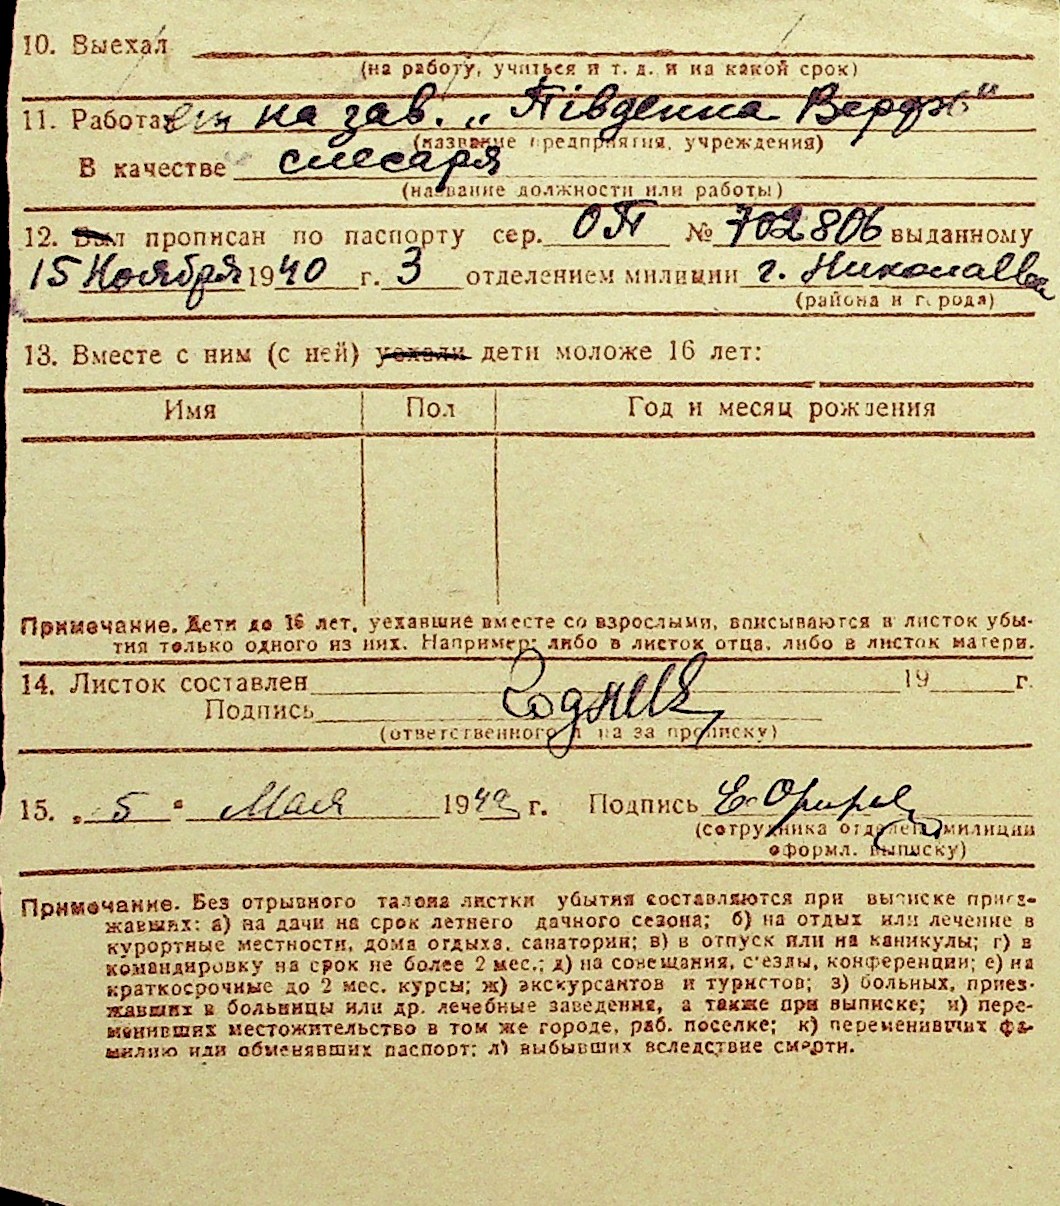 10. Выехал
(на работу, учиться и т. д. и на какой срок)
11. Работает на зав. „Південна Верфь"
(название предприятия, учреждения)
В качестве слесаря
(название должности или работы)
12. Был прописан по паспорту сер. ОП № 702806 выданному
15 Ноября 1940 г. 3 отделением милиции г. Николаева
(района и города)
13. Вместе с ним (с ней) уехали дети моложе 16 лет:
Имя Пол Год и месяц рождения
Примечание. Дети до 16 лет, уехавшие вместе со взрослыми, вписываются в листок убы-
тия только одного из них. Например: либо в листок отца, либо в листок матери.
14. Листок составлен 19 г.
Подпись
(ответственного л на за прописку)
15. „ 5 " Мая 1942 г. Подпись
(сотрудника отделен. милиции
оформл. выписку)
Примечание. Без отрывного талона листки убытия составляются при выписке приез-
жавших: а) на дачи на срок летнего дачного сезона; б) на отдых или лечение в
курортные местности, дома отдыха, санатории; в) в отпуск или на каникулы; г) в
командировку на срок не более 2 мес.; д) на совещания, с'езды, конференции; е) на
краткосрочные до 2 мес. курсы; ж) экскурсантов и туристов; з) больных, приез-
жавших в больницы или др. лечебные заведения, а также при выписке; и) пере-
менивших местожительство в том же городе, раб. поселке; к) переменивших фа-
милию или обменявших паспорт; л) выбывших вследствие смерти.